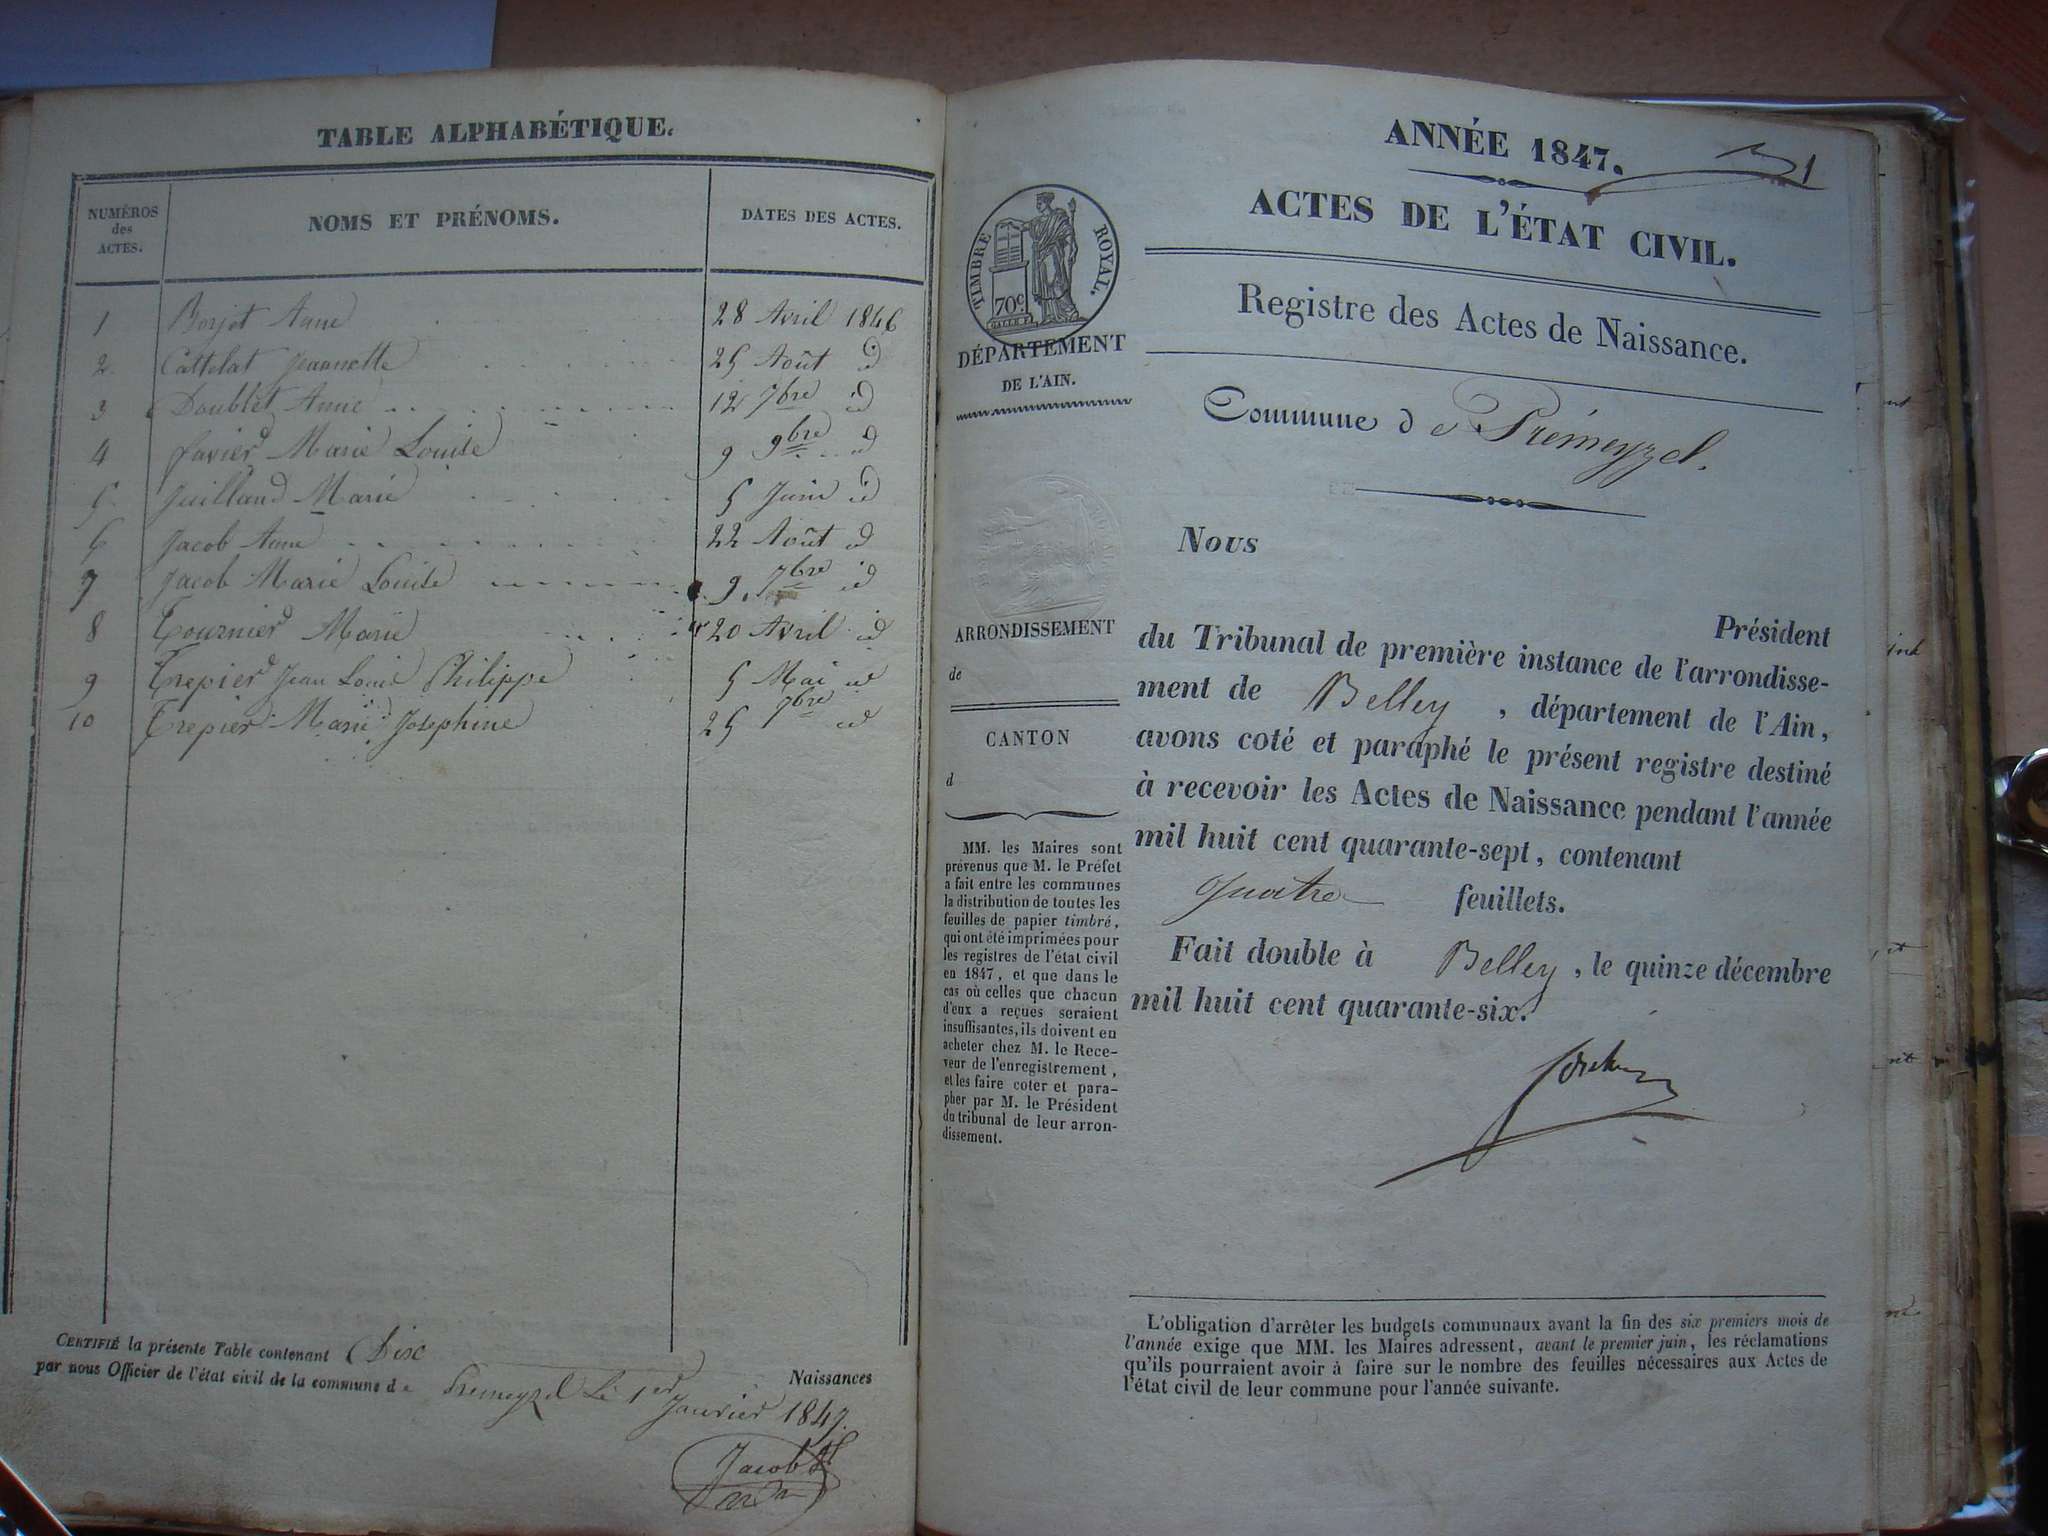 TABLE ALPHABÉTIQUE.
NUMÉROS des ACTES. NOMS ET PRÉNOMS. DATES DES ACTES.
1 Borjet Anne 28 Avril 1846
2 Cattelat Jeannette 25 Août id
3 Doublet Anne 12 7bre id
4 favier Marie Louise 9 9bre id
5 Juilland Marie 5 Juin id
6 Jacob Anne 22 Août id
7 Jacob Marie Louise 9 7bre id
8 Tournier Marie 20 Avril id
9 Trepier Jean Louis Philippe 5 Mai id
10 Trepier Marie Josephine 25 7bre id
CERTIFIÉ la présente Table contenant Dix Naissances
par nous Officier de l'état civil de la commune de Prémeyzel Le 1er Janvier 1847.
Jacob
ANNÉE 1847.
ACTES DE L'ÉTAT CIVIL.
Registre des Actes de Naissance.
Commune de Prémeyzel.
TIMBRE ROYAL.
70c
DÉPARTEMENT
DE L'AIN.
ARRONDISSEMENT
de
CANTON
d
MM. les Maires sont
prévenus que M. le Préfet
a fait entre les communes
la distribution de toutes les
feuilles de papier timbré,
qui ont été imprimées pour
les registres de l'état civil
en 1847, et que dans le
cas où celles que chacun
d'eux a reçues seraient
insuffisantes, ils doivent en
acheter chez M. le Rece-
veur de l'enregistrement,
et les faire coter et para-
pher par M. le Président
du tribunal de leur arron-
dissement.
Nous
Président
du Tribunal de première instance de l'arrondisse-
ment de Belley, département de l'Ain,
avons coté et paraphé le présent registre destiné
à recevoir les Actes de Naissance pendant l'année
mil huit cent quarante-sept, contenant
quatre feuillets.
Fait double à Belley, le quinze décembre
mil huit cent quarante-six.
L'obligation d'arrêter les budgets communaux avant la fin des six premiers mois de
l'année exige que MM. les Maires adressent, avant le premier juin, les réclamations
qu'ils pourraient avoir à faire sur le nombre des feuilles nécessaires aux Actes de
l'état civil de leur commune pour l'année suivante.